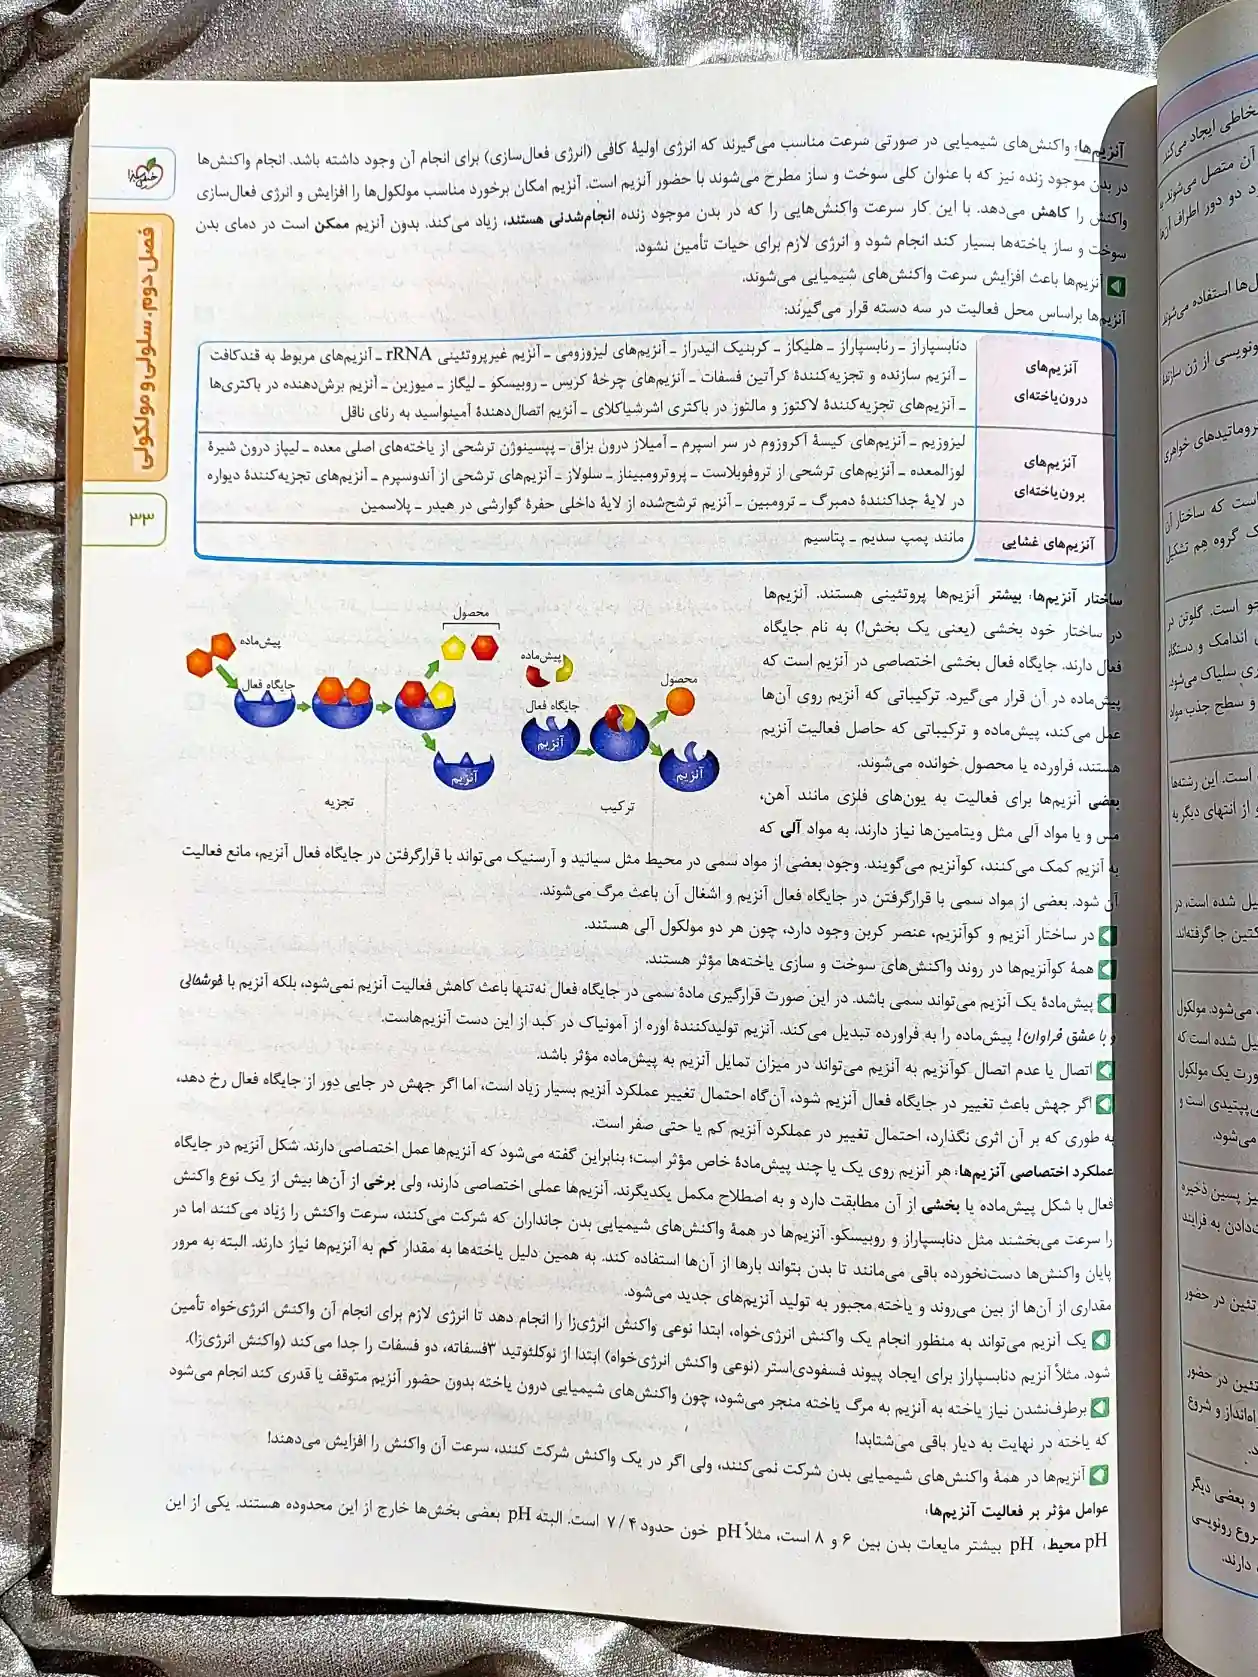 آنزیم‌ها: واکنش‌های شیمیایی در صورتی سرعت مناسب می‌گیرند که انرژی اولیهٔ کافی (انرژی فعال‌سازی) برای انجام آن وجود داشته باشد. انجام واکنش‌ها
در بدن موجود زنده نیز که با عنوان کلی سوخت و ساز مطرح می‌شوند با حضور آنزیم است. آنزیم امکان برخورد مناسب مولکول‌ها را افزایش و انرژی فعال‌سازی
واکنش را کاهش می‌دهد. با این کار سرعت واکنش‌هایی را که در بدن موجود زنده انجام‌شدنی هستند، زیاد می‌کند. بدون آنزیم ممکن است در دمای بدن
سوخت و ساز یاخته‌ها بسیار کند انجام شود و انرژی لازم برای حیات تأمین نشود.
آنزیم‌ها باعث افزایش سرعت واکنش‌های شیمیایی می‌شوند.
آنزیم‌ها براساس محل فعالیت در سه دسته قرار می‌گیرند:
آنزیم‌های
درون‌یاخته‌ای
دنابسپاراز ـ رنابسپاراز ـ هلیکاز ـ کربنیک انیدراز ـ آنزیم‌های لیزوزومی ـ آنزیم غیرپروتئینی rRNA ـ آنزیم‌های مربوط به قندکافت
ـ آنزیم سازنده و تجزیه‌کنندهٔ کرآتین فسفات ـ آنزیم‌های چرخهٔ کربس ـ روبیسکو ـ لیگاز ـ میوزین ـ آنزیم برش‌دهنده در باکتری‌ها
ـ آنزیم‌های تجزیه‌کنندهٔ لاکتوز و مالتوز در باکتری اشرشیاکلای ـ آنزیم اتصال‌دهندهٔ آمینواسید به رنای ناقل
آنزیم‌های
برون‌یاخته‌ای
لیزوزیم ـ آنزیم‌های کیسهٔ آکروزوم در سر اسپرم ـ آمیلاز درون بزاق ـ پپسینوژن ترشحی از یاخته‌های اصلی معده ـ لیپاز درون شیرهٔ
لوزالمعده ـ آنزیم‌های ترشحی از تروفوبلاست ـ پروترومبیناز ـ سلولاز ـ آنزیم‌های ترشحی از آندوسپرم ـ آنزیم‌های تجزیه‌کنندهٔ دیواره
در لایهٔ جداکنندهٔ دمبرگ ـ ترومبین ـ آنزیم ترشح‌شده از لایهٔ داخلی حفرهٔ گوارشی در هیدر ـ پلاسمین
آنزیم‌های غشایی
مانند پمپ سدیم ـ پتاسیم
ساختار آنزیم‌ها: بیشتر آنزیم‌ها پروتئینی هستند. آنزیم‌ها
در ساختار خود بخشی (یعنی یک بخش!) به نام جایگاه
فعال دارند. جایگاه فعال بخشی اختصاصی در آنزیم است که
پیش‌ماده در آن قرار می‌گیرد. ترکیباتی که آنزیم روی آن‌ها
عمل می‌کند، پیش‌ماده و ترکیباتی که حاصل فعالیت آنزیم
هستند، فراورده یا محصول خوانده می‌شوند.
بعضی آنزیم‌ها برای فعالیت به یون‌های فلزی مانند آهن،
مس و یا مواد آلی مثل ویتامین‌ها نیاز دارند. به مواد آلی که
به آنزیم کمک می‌کنند، کوآنزیم می‌گویند. وجود بعضی از مواد سمی در محیط مثل سیانید و آرسنیک می‌تواند با قرارگرفتن در جایگاه فعال آنزیم، مانع فعالیت
آن شود. بعضی از مواد سمی با قرارگرفتن در جایگاه فعال آنزیم و اشغال آن باعث مرگ می‌شوند.
پیش‌ماده
جایگاه فعال
محصول
آنزیم
تجزیه
پیش‌ماده
جایگاه فعال
آنزیم
محصول
آنزیم
ترکیب
در ساختار آنزیم و کوآنزیم، عنصر کربن وجود دارد، چون هر دو مولکول آلی هستند.
همهٔ کوآنزیم‌ها در روند واکنش‌های سوخت و سازی یاخته‌ها مؤثر هستند.
پیش‌مادهٔ یک آنزیم می‌تواند سمی باشد. در این صورت قرارگیری مادهٔ سمی در جایگاه فعال نه‌تنها باعث کاهش فعالیت آنزیم نمی‌شود، بلکه آنزیم با خوشحالی
و با عشق فراوان! پیش‌ماده را به فراورده تبدیل می‌کند. آنزیم تولیدکنندهٔ اوره از آمونیاک در کبد از این دست آنزیم‌هاست.
اتصال یا عدم اتصال کوآنزیم به آنزیم می‌تواند در میزان تمایل آنزیم به پیش‌ماده مؤثر باشد.
اگر جهش باعث تغییر در جایگاه فعال آنزیم شود، آن‌گاه احتمال تغییر عملکرد آنزیم بسیار زیاد است، اما اگر جهش در جایی دور از جایگاه فعال رخ دهد،
به طوری که بر آن اثری نگذارد، احتمال تغییر در عملکرد آنزیم کم یا حتی صفر است.
عملکرد اختصاصی آنزیم‌ها: هر آنزیم روی یک یا چند پیش‌مادهٔ خاص مؤثر است؛ بنابراین گفته می‌شود که آنزیم‌ها عمل اختصاصی دارند. شکل آنزیم در جایگاه
فعال با شکل پیش‌ماده یا بخشی از آن مطابقت دارد و به اصطلاح مکمل یکدیگرند. آنزیم‌ها عملی اختصاصی دارند، ولی برخی از آن‌ها بیش از یک نوع واکنش
را سرعت می‌بخشند مثل دنابسپاراز و روبیسکو. آنزیم‌ها در همهٔ واکنش‌های شیمیایی بدن جانداران که شرکت می‌کنند، سرعت واکنش را زیاد می‌کنند اما در
پایان واکنش‌ها دست‌نخورده باقی می‌مانند تا بدن بتواند بارها از آن‌ها استفاده کند. به همین دلیل یاخته‌ها به مقدار کم به آنزیم‌ها نیاز دارند. البته به مرور
مقداری از آن‌ها از بین می‌روند و یاخته مجبور به تولید آنزیم‌های جدید می‌شود.
یک آنزیم می‌تواند به منظور انجام یک واکنش انرژی‌خواه، ابتدا نوعی واکنش انرژی‌زا را انجام دهد تا انرژی لازم برای انجام آن واکنش انرژی‌خواه تأمین
شود. مثلاً آنزیم دنابسپاراز برای ایجاد پیوند فسفودی‌استر (نوعی واکنش انرژی‌خواه) ابتدا از نوکلئوتید ۳فسفاته، دو فسفات را جدا می‌کند (واکنش انرژی‌زا).
برطرف‌نشدن نیاز یاخته به آنزیم به مرگ یاخته منجر می‌شود، چون واکنش‌های شیمیایی درون یاخته بدون حضور آنزیم متوقف یا قدری کند انجام می‌شود
که یاخته در نهایت به دیار باقی می‌شتابد!
آنزیم‌ها در همهٔ واکنش‌های شیمیایی بدن شرکت نمی‌کنند، ولی اگر در یک واکنش شرکت کنند، سرعت آن واکنش را افزایش می‌دهند!
عوامل مؤثر بر فعالیت آنزیم‌ها:
pH محیط: pH بیشتر مایعات بدن بین ۶ و ۸ است، مثلاً pH خون حدود ۷/۴ است. البته pH بعضی بخش‌ها خارج از این محدوده هستند. یکی از این
فصل دوم. سلولی و مولکولی
۳۳
خاطی ایجاد می‌کند
آن متصل می‌شوند
دو دور اطراف
ل‌ها استفاده می‌شوند
رونویسی از ژن سازندهٔ
روماتیدهای خواهری
است که ساختار آن
ک گروه هم تشکیل
جو است. گلوتن در
اندامک و دستگاه
ری سلیاک می‌شود
و سطح جذب مواد
است. این رشته‌ها
و از انتهای دیگر به
یل شده است، در
کتین جا گرفته‌اند
می‌شود. مولکول
یل شده است که
ورت یک مولکول
ی‌پپتیدی است و
می‌شود.
یز پسین ذخیره
دادن به فرایند
تئین در حضور
تئین در حضور
راه‌انداز و شروع
و بعضی دیگر
روع رونویسی
دارند.